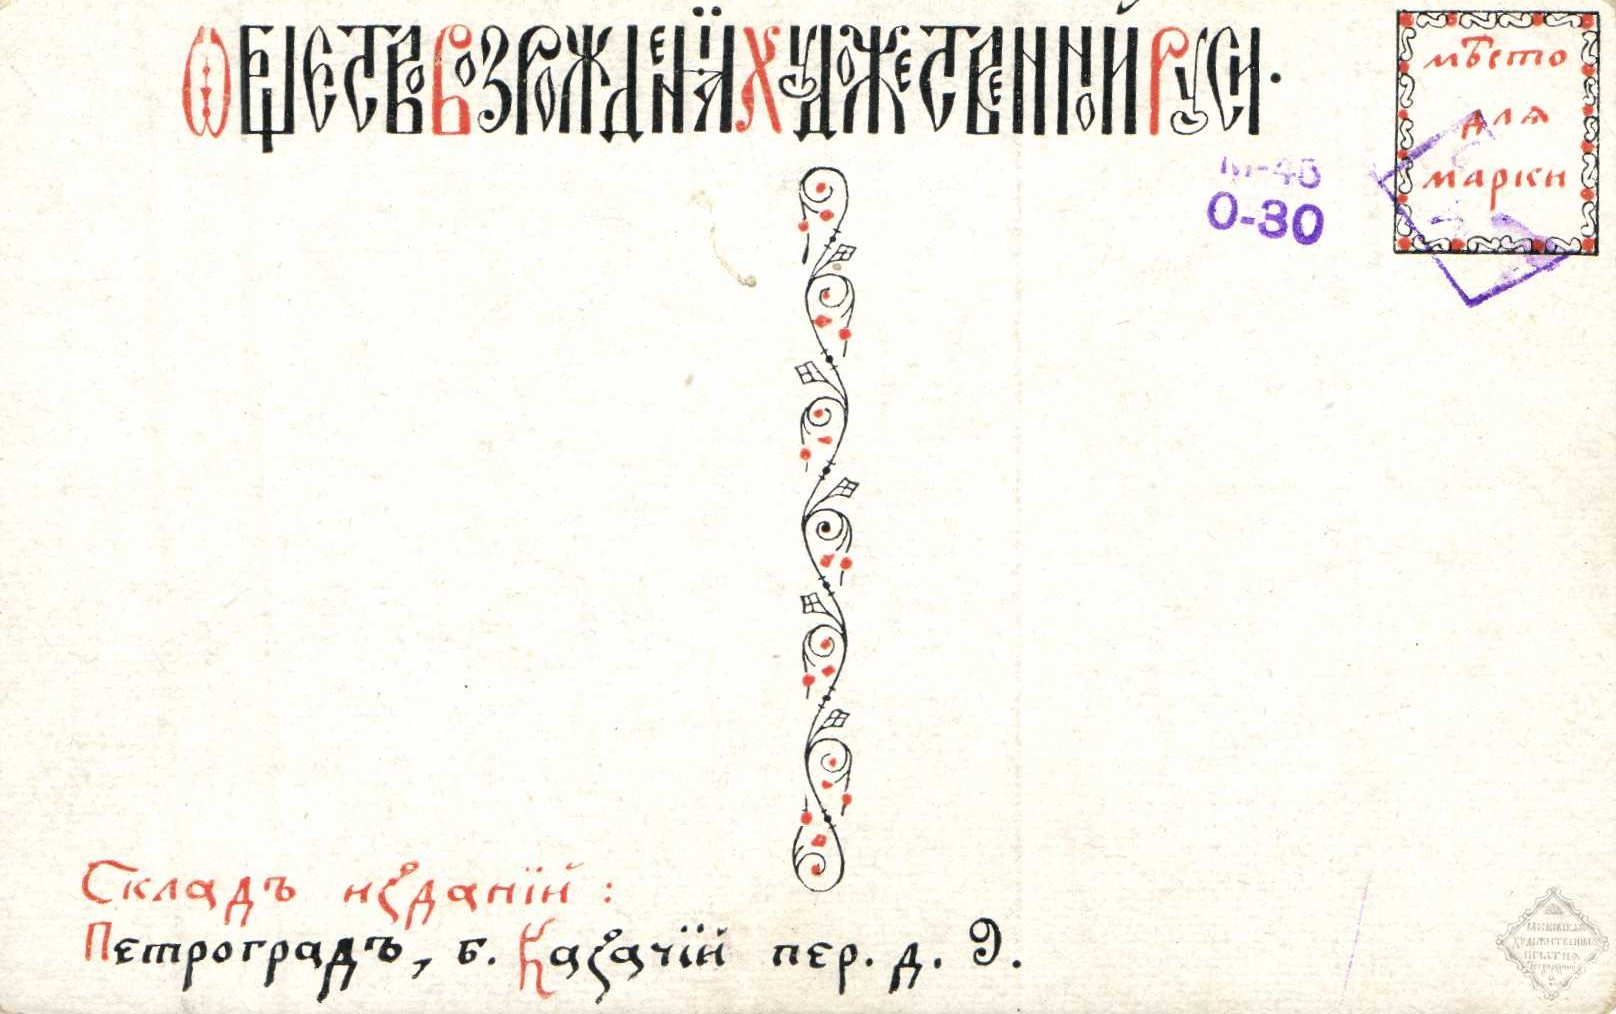 Ѡбщество Возрожденїя Художественной Руси.
мѣсто
для
марки
0-30
Складъ изданїй:
Петроградъ, б. Казачїй пер. д. 9.